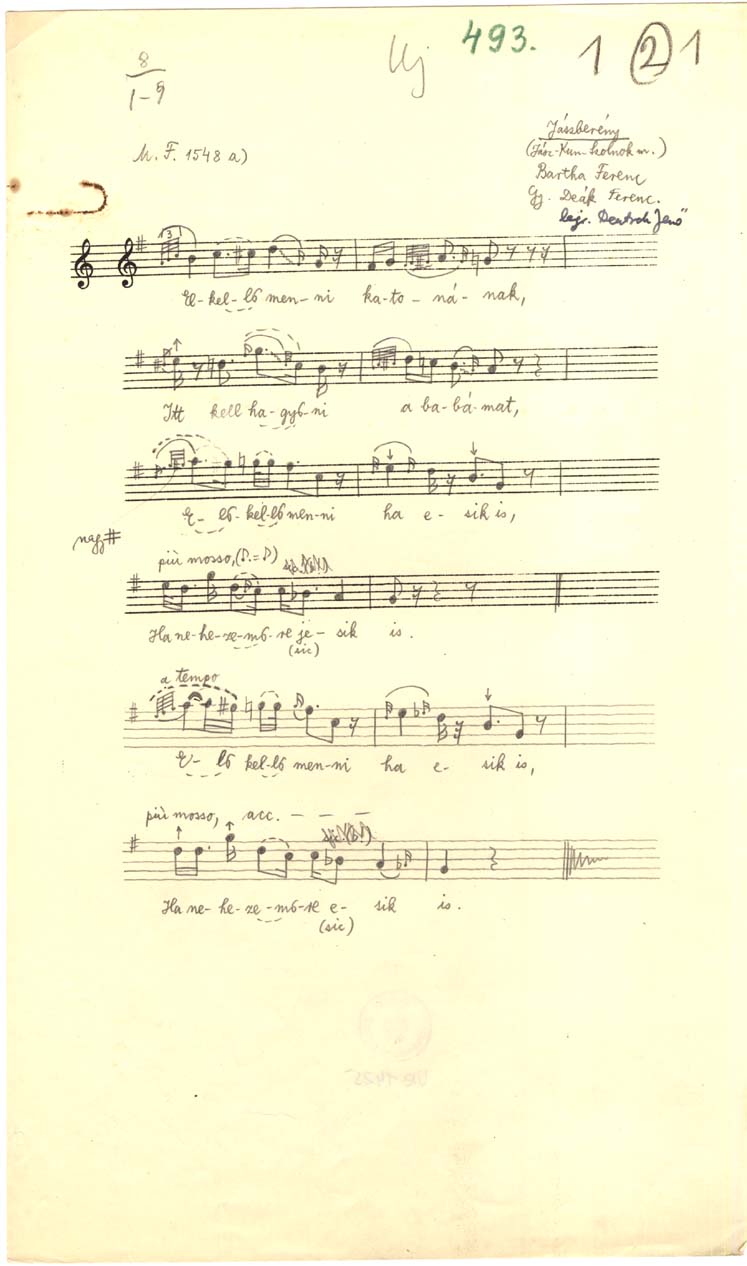 8
1-9
Uj
493.
1 2 1
M. F. 1548 a)
Jászberény
(Jász-Kun-Szolnok m.)
Bartha Ferenc
Gy. Deák Ferenc.
lejr. Deutsch Jenő
3
El-kel-lő men-ni ka-to-ná-nak,
Itt kell ha-győ-ni a ba-bá-mat,
E-lő-kel-lő men-ni ha e-sik is,
nagy #
più mosso,
Ha ne-he-ze-mő-re je-sik is.
(sic)
a tempo
E-lő kel-lő men-ni ha e-sik is,
più mosso, acc. – – –
Ha ne-he-ze-mő-re e-sik is.
(sic)